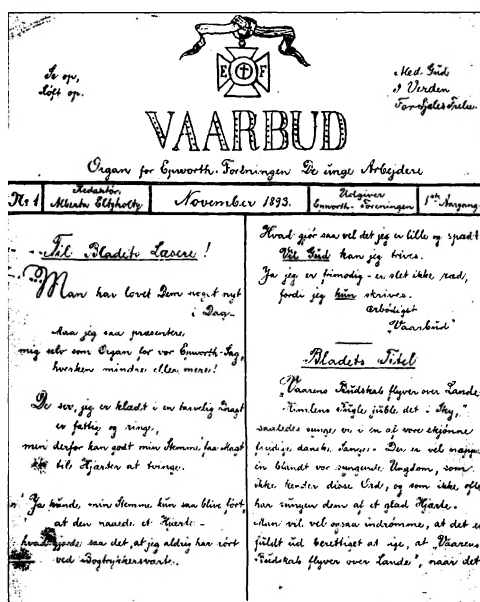 Se op,
Løft op.
Med Gud
I Verden
For Sjæles Frelse.
E F
VAARBUD
Organ for Epworth-Foreningen De unge Arbejdere
No 1
Redaktör,
Alberta Eltzholtz
November 1893.
Udgiver
Epworth-Foreningen
1ste Aargang
Til Bladets Læsere!
Man har lovet Dem noget nyt
i Dag—
Maa jeg saa præsentere,
mig selv som Organ for vor Epworth-Sag,
hverken mindre eller mere!
De ser, jeg er klædt i en tarvelig Dragt
er fattig og ringe,
men derfor kan godt min Stemme faa Magt
til Hjærter at tvinge.
Ja kunde min Stemme kun saa blive ført,
at den naaede et Hjærte —
hvad gjorde saa det, at jeg aldrig har rört
ved Bogtrykkersværte.
Hvad gjör saa vel det jeg er lille og spæd
Vil Gud kan jeg trives.
Ja jeg er frimodig — er slet ikke ræd,
fordi jeg kun skrives.
Ærbödigst
"Vaarbud"
Bladets Titel
"Vaarens Budskab flyver over Lande
Himlens Fugle juble det i Sky,"
saaledes synge vi i en af vore skjönne
frejdige danske Sange. Der er vel næppe
én blandt vor syngende Ungdom, som
ikke kender disse Ord, og som ikke ofte
har sungen dem af et glad Hjærte.
Man vil vel ogsaa indrömme, at det er
fuldt ud berettiget at sige, at "Vaarens
Budskab flyver over Lande", naar det